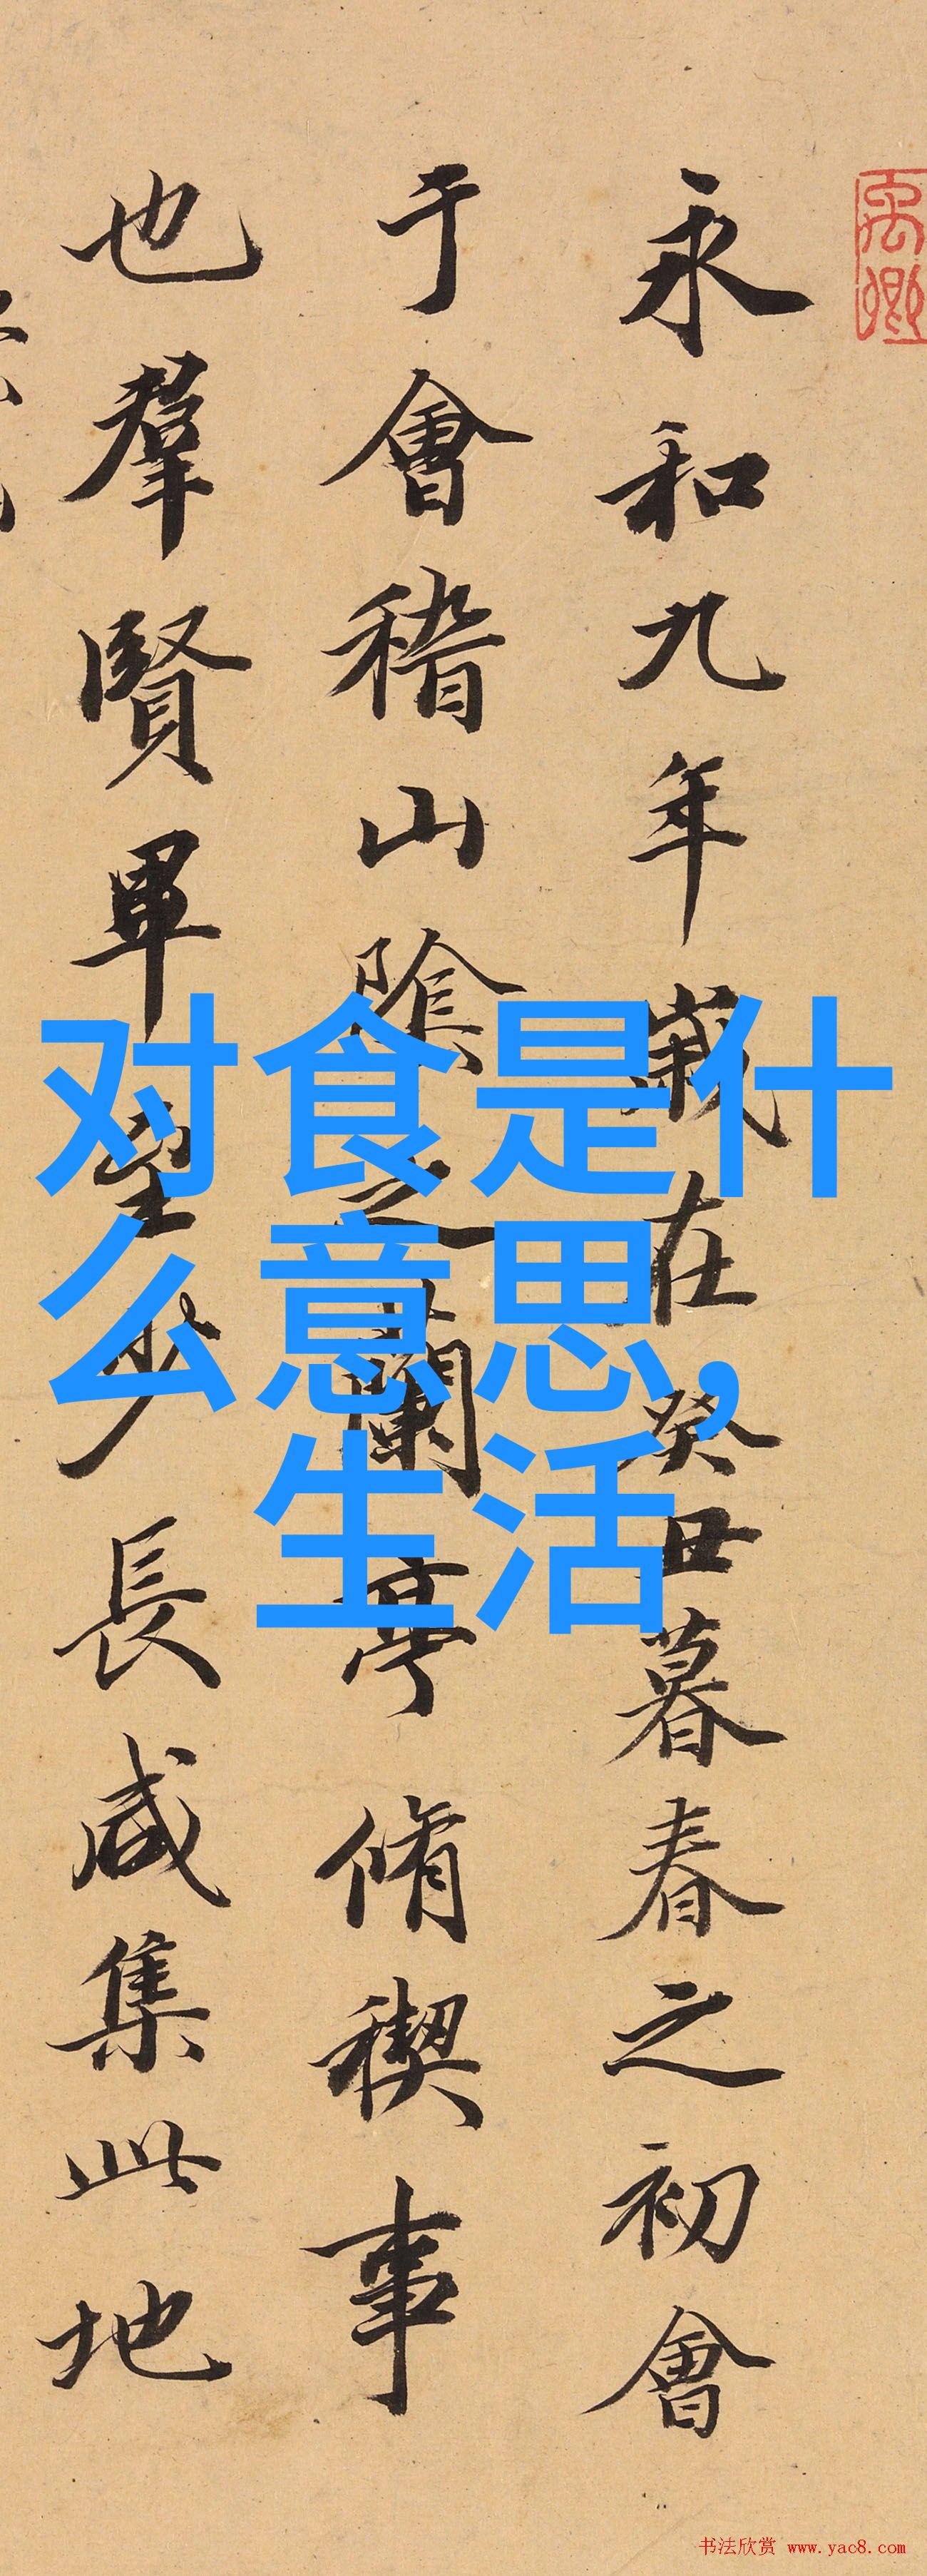 永和九年歲在癸丑暮春之初會
于會稽山陰之蘭亭脩稧事
也羣賢畢至少長咸集此地
对食是什
么意思,
生活
书法欣赏 www.yac8.com